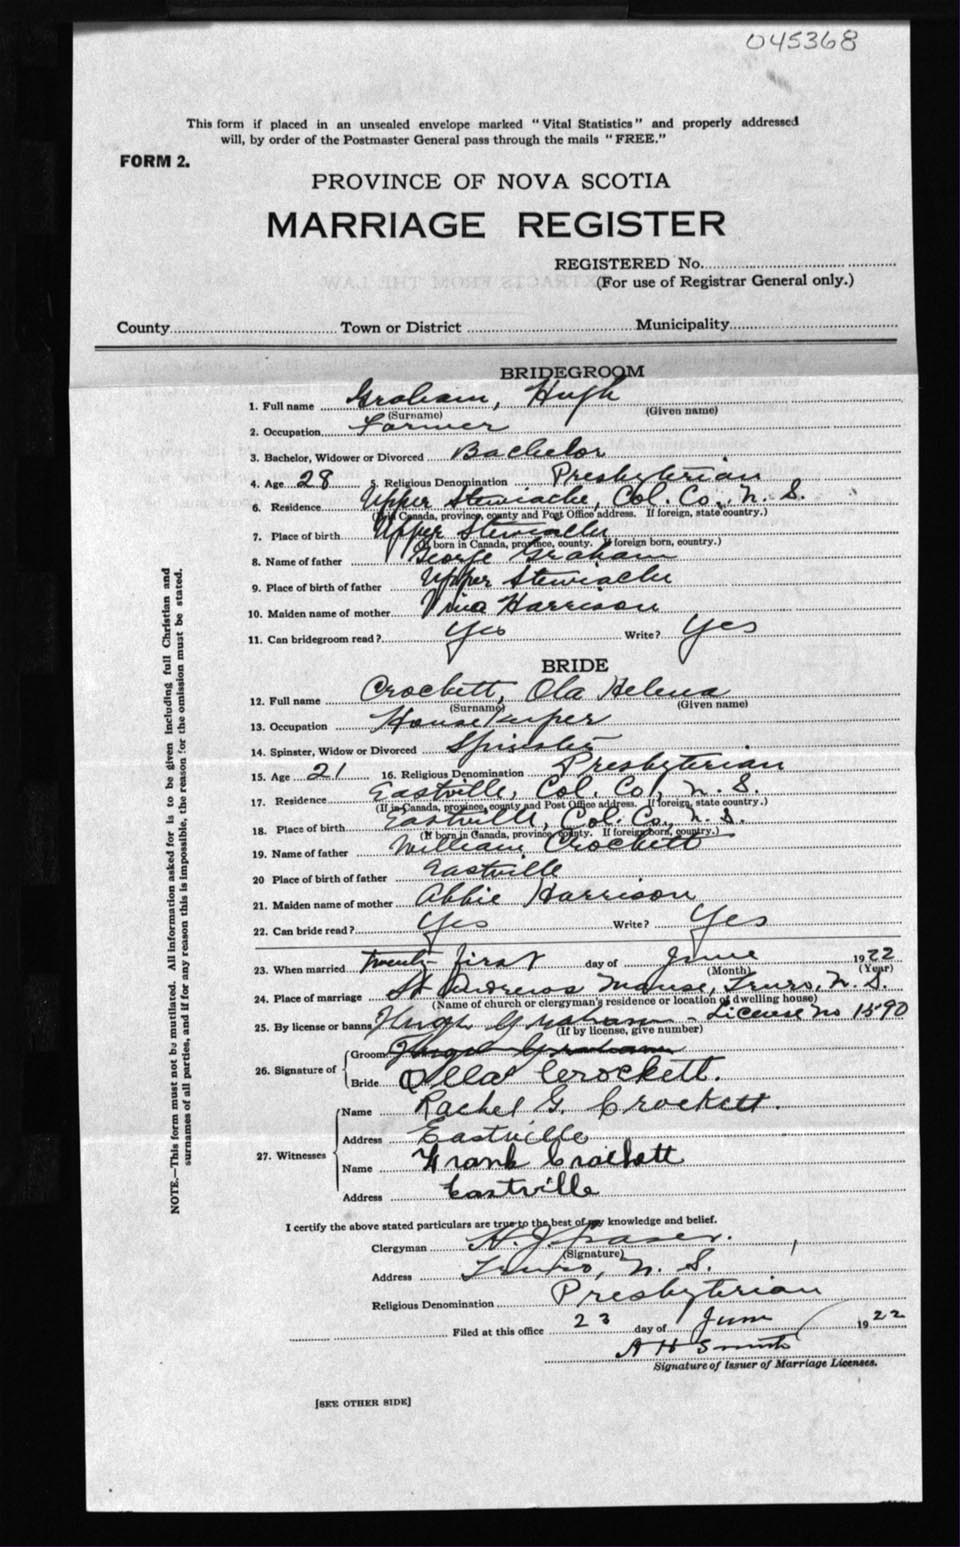 045368
This form if placed in an unsealed envelope marked "Vital Statistics" and properly addressed
will, by order of the Postmaster General pass through the mails "FREE."
FORM 2.
PROVINCE OF NOVA SCOTIA
MARRIAGE REGISTER
REGISTERED No.
(For use of Registrar General only.)
County Town or District Municipality
BRIDEGROOM
1. Full name Graham, Hugh
(Surname) (Given name)
2. Occupation Farmer
3. Bachelor, Widower or Divorced Bachelor
4. Age 28 5. Religious Denomination Presbyterian
6. Residence Upper Stewiacke, Col. Co., N. S.
(If in Canada, province, county and Post Office address. If foreign, state country.)
7. Place of birth Upper Stewiacke
(If born in Canada, province, county. If foreign born, country.)
8. Name of father George Graham
9. Place of birth of father Upper Stewiacke
10. Maiden name of mother Harrison
11. Can bridegroom read? Yes Write? Yes
BRIDE
12. Full name Crockett, Ola Helena
(Surname) (Given name)
13. Occupation Housekeeper
14. Spinster, Widow or Divorced Spinster
15. Age 21 16. Religious Denomination Presbyterian
17. Residence Eastville, Col. Co, N. S.
(If in Canada, province, county and Post Office address. If foreign, state country.)
18. Place of birth Eastville, Col. Co., N. S.
(If born in Canada, province, county. If foreign born, country.)
19. Name of father William Crockett
20 Place of birth of father Eastville
21. Maiden name of mother Abbie Harrison
22. Can bride read? Yes Write? Yes
23. When married twenty first day of June 1922
(Month) (Year)
24. Place of marriage St Andrews Manse, Truro, N. S.
(Name of church or clergyman's residence or location of dwelling house)
25. By license or banns Hugh Graham - License No 1590
(If by license, give number)
26. Signature of
Groom Hugh Graham
Bride Olla Crockett.
27. Witnesses
Name Rachel G. Crockett.
Address Eastville
Name Frank Crockett
Address Eastville
I certify the above stated particulars are true to the best of my knowledge and belief.
Clergyman H. J. Fraser.
(Signature)
Address Truro, N. S.
Religious Denomination Presbyterian
Filed at this office 23 day of June 1922
A H Smith
Signature of Issuer of Marriage Licenses.
[SEE OTHER SIDE]
NOTE.—This form must not be mutilated. All information asked for is to be given including full Christian and
surnames of all parties, and if for any reason this is impossible, the reason for the omission must be stated.